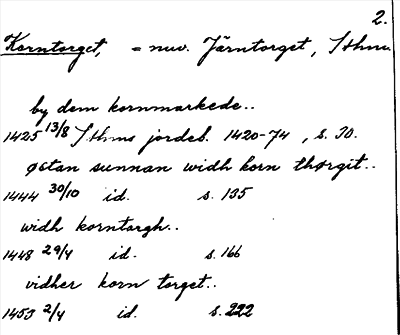 2.
Korntorget, = nuv. Järntorget, Sthm
by dem kornmarkede..
1425 13/8 Sthms jordeb. 1420-74, s. 30.
østan sunnan widh korn thørgit..
1444 30/10 id. s. 135
widh korntorgh..
1448 29/4 id. s. 166
vidher korn torget..
1453 2/4 id. s. 222